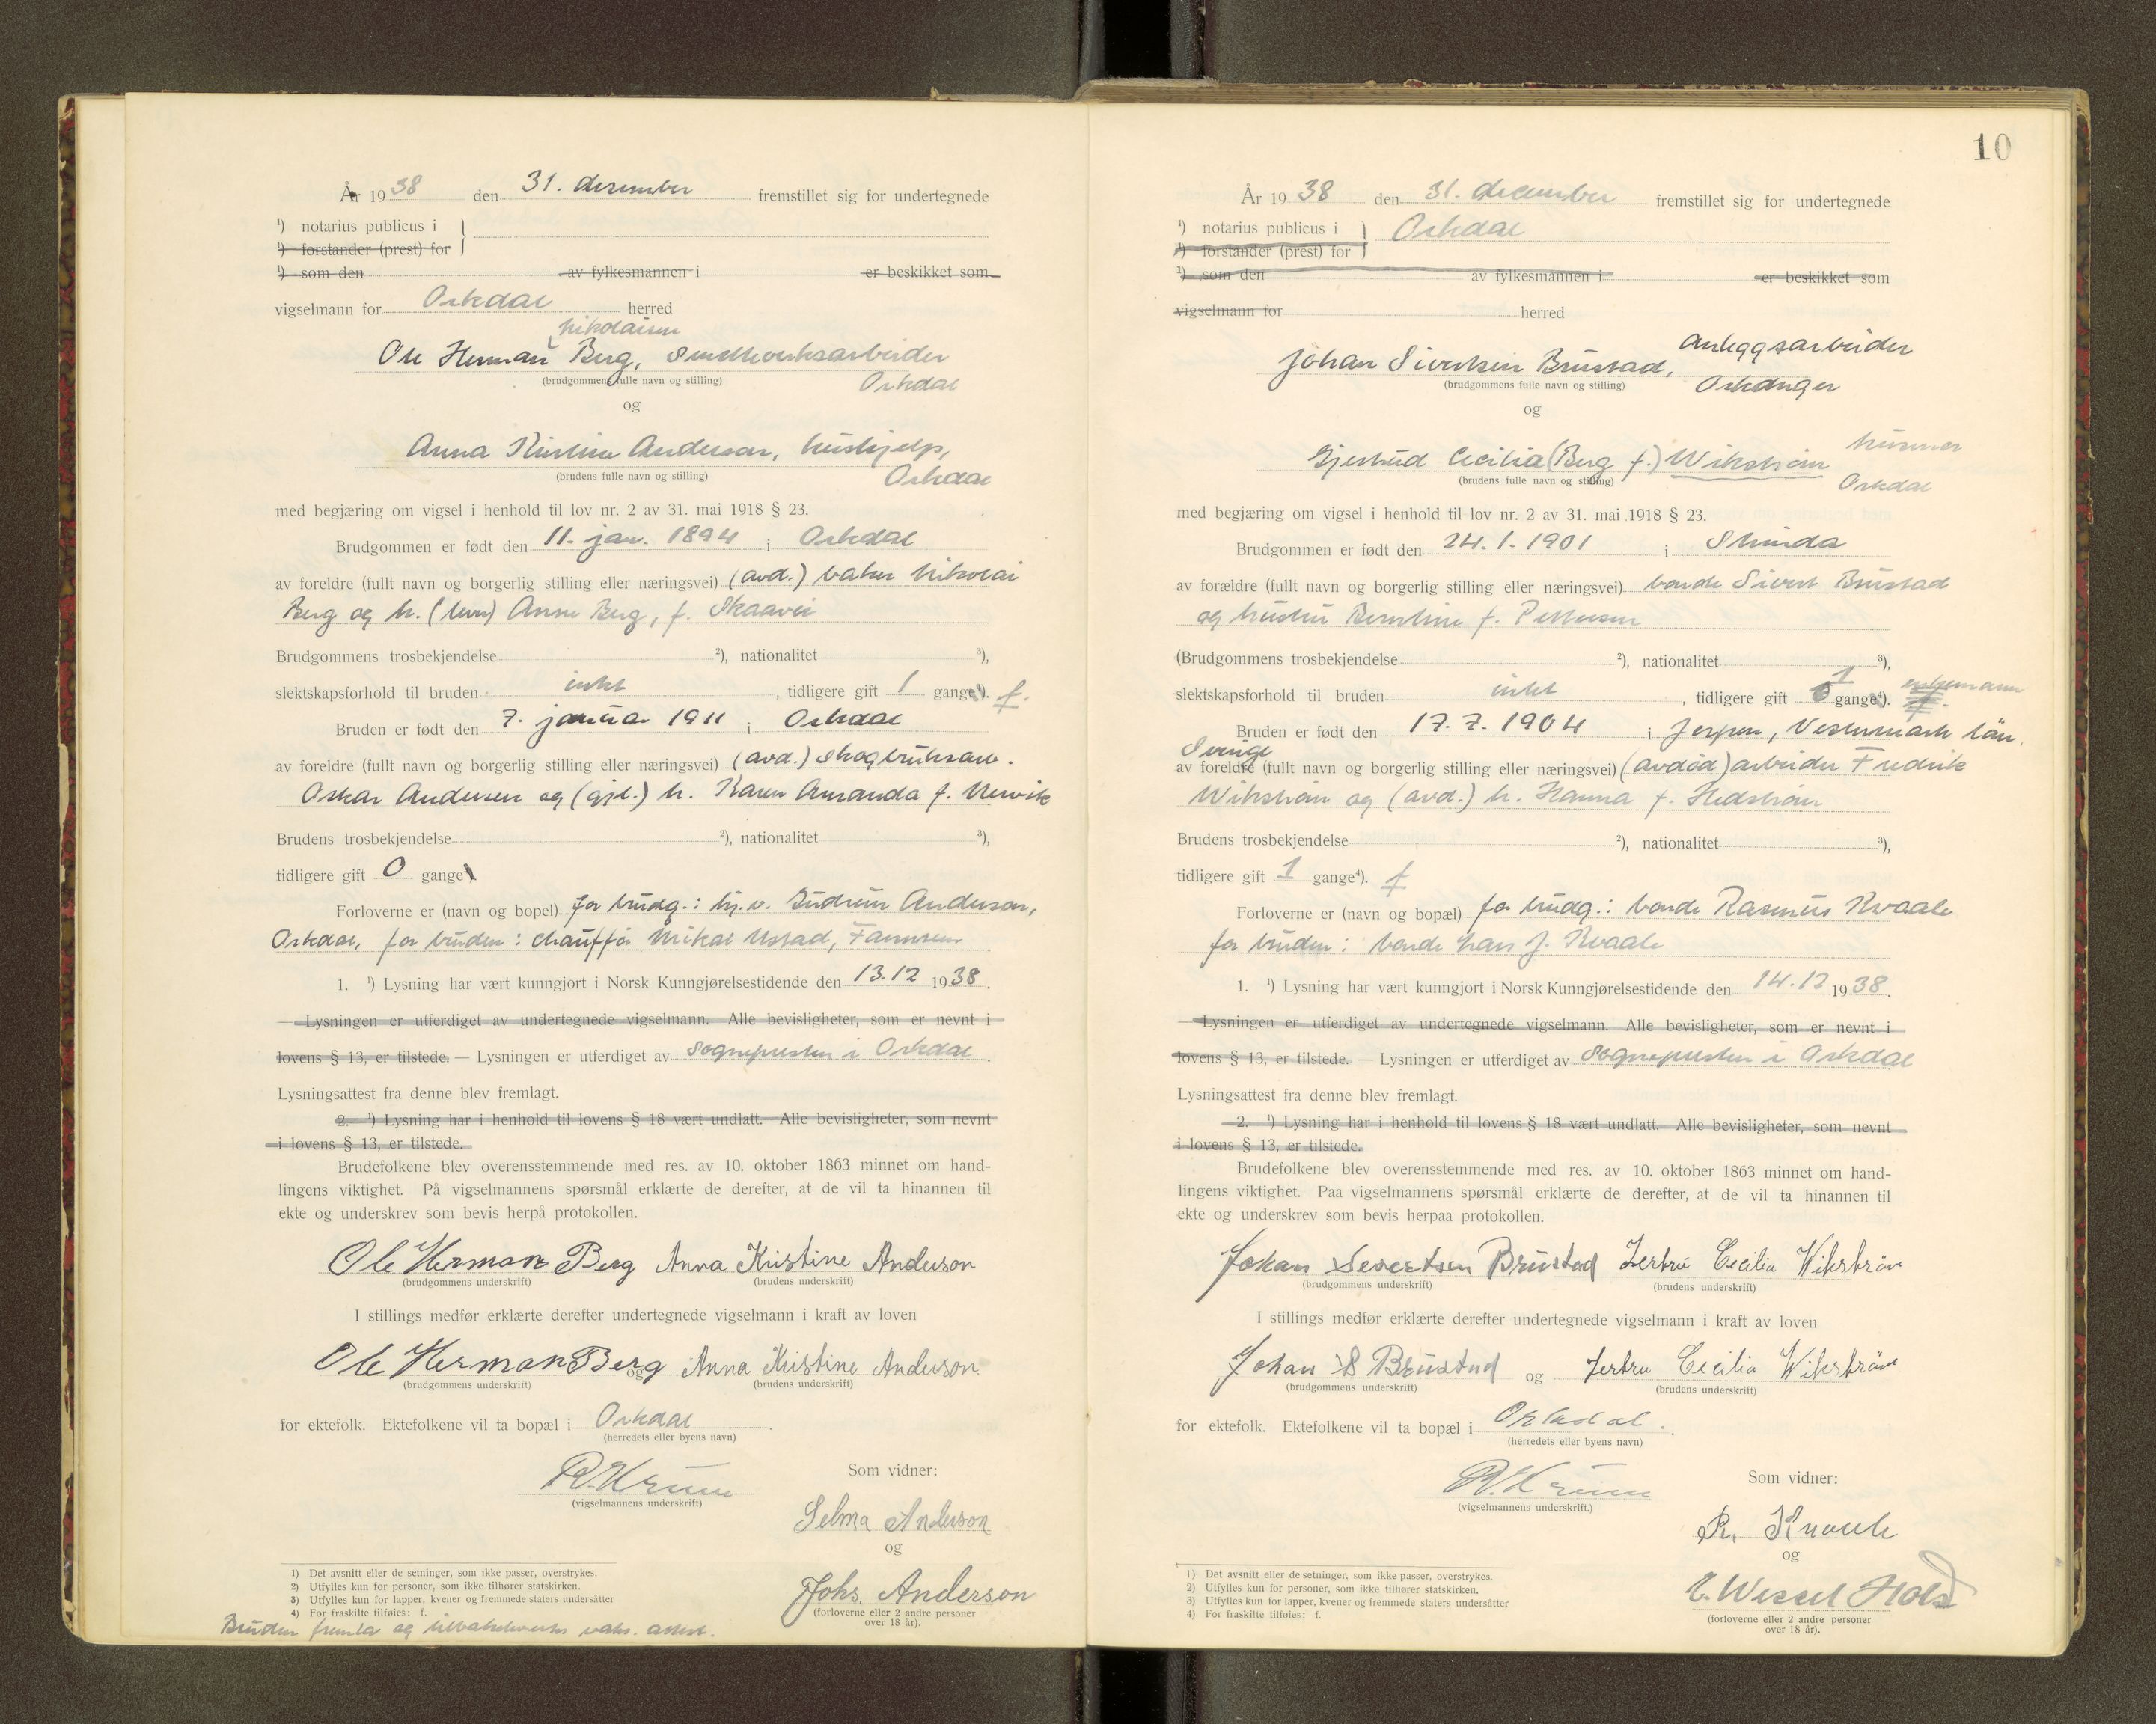 År 1938 den 31. desember fremstillet sig for undertegnede
¹) notarius publicus i
¹) forstander (prest) for
¹) som den av fylkesmannen i er beskikket som
vigselmann for Orkdal herred
Nikolaisen
Ole Herman Berg, smelteverksarbeider
(brudgommens fulle navn og stilling) Orkdal
og
Anna Kristine Anderson, hushjelp,
(brudens fulle navn og stilling) Orkdal
med begjæring om vigsel i henhold til lov nr. 2 av 31. mai 1918 § 23.
Brudgommen er født den 11. jan. 1894 i Orkdal
av foreldre (fullt navn og borgerlig stilling eller næringsvei) (avd.) baker Nikolai
Berg og h. (lever) Anne Berg, f. Skaavei
Brudgommens trosbekjendelse ²), nationalitet ³),
slektskapsforhold til bruden intet, tidligere gift 1 gange⁴). f.
Bruden er født den 7. januar 1911 i Orkdal
av foreldre (fullt navn og borgerlig stilling eller næringsvei) (avd.) skogbruksarb.
Oskar Andersen og (gjl.) h. Karen Amanda f.
Brudens trosbekjendelse ²), nationalitet ³),
tidligere gift 0 gange
Forloverne er (navn og bopel) for brudg.: hj.v. Gudrun Anderson,
Orkdal, for bruden: chauffør Mikal Ustad, Fannrem
1. ¹) Lysning har vært kunngjort i Norsk Kunngjørelsestidende den 13.12 1938.
— Lysningen er utferdiget av undertegnede vigselmann. Alle bevisligheter, som er nevnt i
lovens § 13, er tilstede. — Lysningen er utferdiget av Sognepresten i Orkdal.
Lysningsattest fra denne blev fremlagt.
2. ¹) Lysning har i henhold til lovens § 18 vært undlatt. Alle bevisligheter, som nevnt
i lovens § 13, er tilstede.
Brudefolkene blev overensstemmende med res. av 10. oktober 1863 minnet om hand-
lingens viktighet. På vigselmannens spørsmål erklærte de derefter, at de vil ta hinannen til
ekte og underskrev som bevis herpå protokollen.
Ole Herman Berg Anna Kristine Anderson
(brudgommens underskrift) (brudens underskrift)
I stillings medfør erklærte derefter undertegnede vigselmann i kraft av loven
Ole Herman Berg og Anna Kristine Anderson
(brudgommens underskrift) (brudens underskrift)
for ektefolk. Ektefolkene vil ta bopæl i Orkdal.
(herredets eller byens navn)
(vigselmannens underskrift)
Som vidner:
Selma Anderson
og
Johs. Anderson
(forloverne eller 2 andre personer
over 18 år).
1) Det avsnitt eller de setninger, som ikke passer, overstrykes.
2) Utfylles kun for personer, som ikke tilhører statskirken.
3) Utfylles kun for lapper, kvener og fremmede staters undersåtter
4) For fraskilte tilføies: f.
Bruden fremla og tilbakeleverts vaks. attest.
10
År 1938 den 31. december fremstillet sig for undertegnede
¹) notarius publicus i Orkdal
¹) forstander (prest) for
¹) som den av fylkesmannen i er beskikket som
vigselmann for herred
Johan Sivertsen Brustad, anleggsarbeider
(brudgommens fulle navn og stilling) Orkanger
og
Gjertrud Cecilia (Berg f.) Wikström husmor
(brudens fulle navn og stilling) Orkdal
med begjæring om vigsel i henhold til lov nr. 2 av 31. mai 1918 § 23.
Brudgommen er født den 24.1.1901 i Strinda
av forældre (fullt navn og borgerlig stilling eller næringsvei) bonde Sivert Brustad
og hustru Berntine f. Pettersen
(Brudgommens trosbekjendelse ²), nationalitet ³),
slektskapsforhold til bruden intet, tidligere gift 1 gange⁴). enkemann
Bruden er født den 17.7.1904 i Jerpen, Vesternorrk län,
Sverige
av foreldre (fullt navn og borgerlig stilling eller næringsvei) (avdød) arbeider Fredrik
Wikström og (avd.) h. Hanna f. Hedström
Brudens trosbekjendelse ²), nationalitet ³),
tidligere gift 1 gange⁴). f
Forloverne er (navn og bopæl) for brudg.: bonde Rasmus Kvaale
for bruden: bonde Hans J. Kvaale
1. ¹) Lysning har vært kunngjort i Norsk Kunngjørelsestidende den 14.12 1938.
— Lysningen er utferdiget av undertegnede vigselmann. Alle bevisligheter, som er nevnt i
lovens § 13, er tilstede. — Lysningen er utferdiget av Sognepresten i Orkdal
Lysningsattest fra denne blev fremlagt.
2. ¹) Lysning har i henhold til lovens § 18 vært undlatt. Alle bevisligheter, som nevnt
i lovens § 13, er tilstede.
Brudefolkene blev overensstemmende med res. av 10. oktober 1863 minnet om hand-
lingens viktighet. Paa vigselmannens spørsmål erklærte de derefter, at de vil ta hinannen til
ekte og underskrev som bevis herpaa protokollen.
Johan Severtsen Brustad Jertru Cecilia Wikström
(brudgommens underskrift) (brudens underskrift)
I stillings medfør erklærte derefter undertegnede vigselmann i kraft av loven
Johan S Brustad og Jertru Cecilia Wikström
(brudgommens underskrift) (brudens underskrift)
for ektefolk. Ektefolkene vil ta bopæl i Orkdal.
(herredets eller byens navn)
(vigselmannens underskrift.)
Som vidner:
R. Kvaale
og
E. Wessel Holst
(forloverne eller 2 andre personer
over 18 år).
1) Det avsnitt eller de setninger, som ikke passer, overstrykes.
2) Utfylles kun for personer, som ikke tilhører statskirken.
3) Utfylles kun for lapper, kvener og fremmede staters undersåtter
4) For fraskilte tilføies: f.